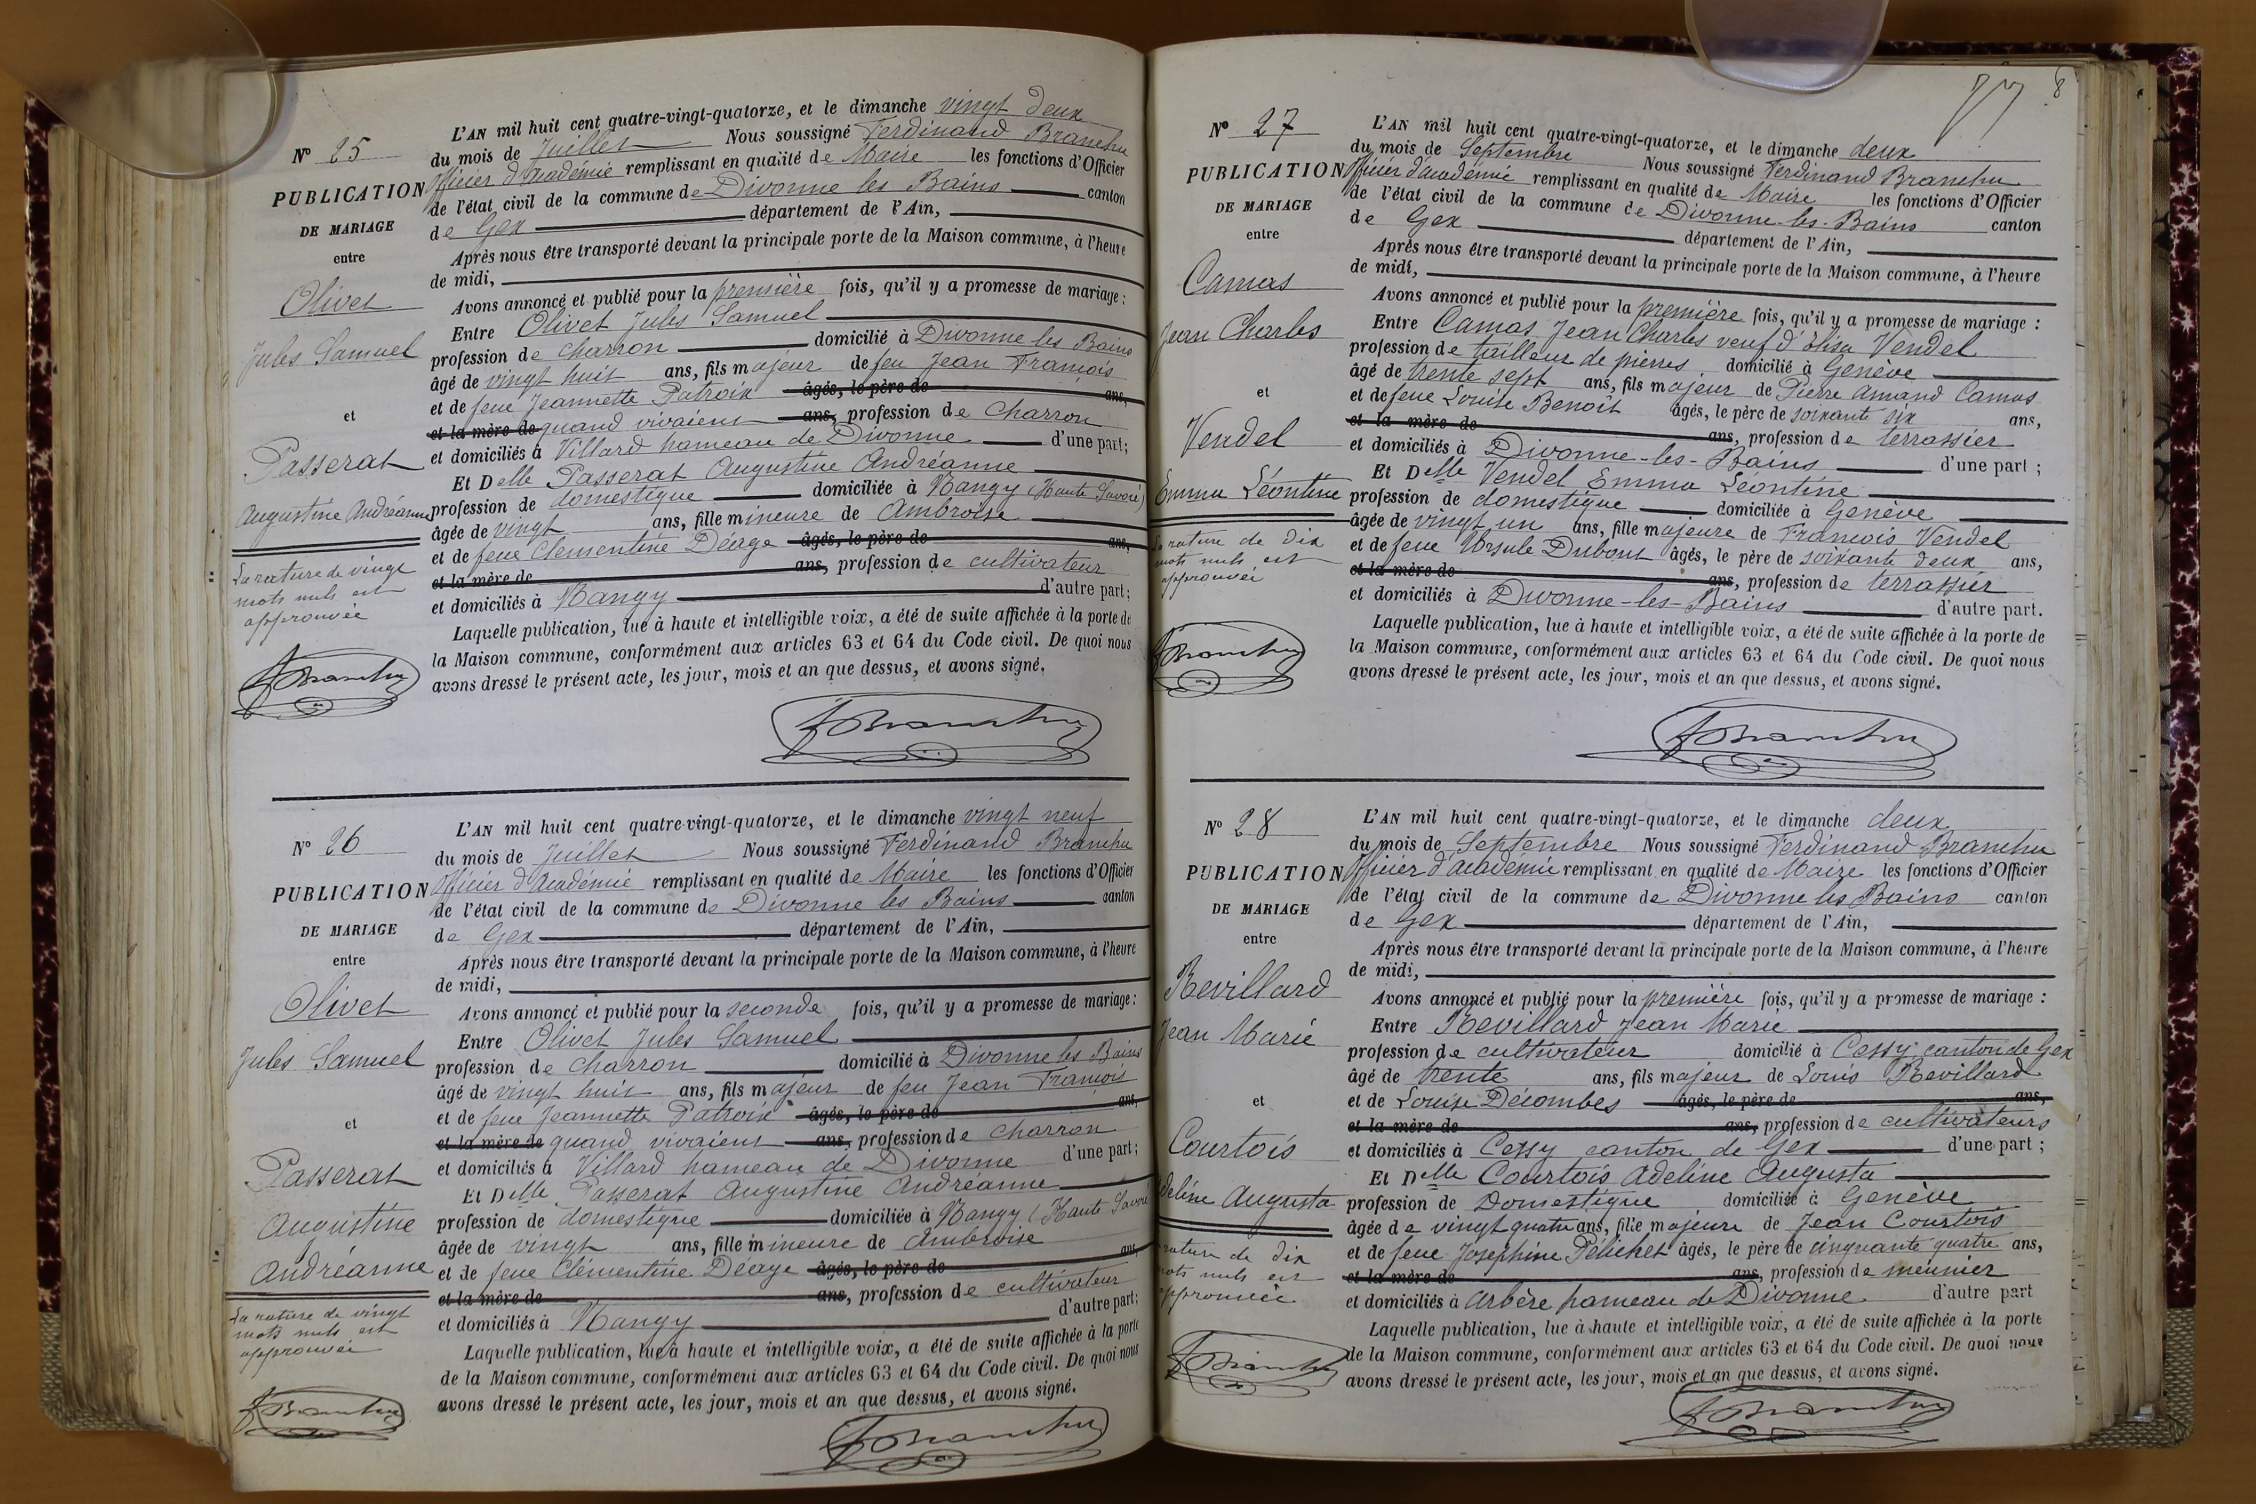 N° 25
PUBLICATION
DE MARIAGE
entre
Olivet
Jules Samuel
et
Passerat
Augustine Andréanne
La rature de vingt
mots nuls est
approuvée
FBranchu
L'AN mil huit cent quatre-vingt-quatorze, et le dimanche vingt deux
du mois de Juillet Nous soussigné Ferdinand Branchu
Officier d'académie remplissant en qualité de Maire les fonctions d'Officier
de l'état civil de la commune de Divonne les Bains canton
de Gex département de l'Ain,
Après nous être transporté devant la principale porte de la Maison commune, à l'heure
de midi,
Avons annoncé et publié pour la première fois, qu'il y a promesse de mariage :
Entre Olivet Jules Samuel
profession de charron domicilié à Divonne les Bains
âgé de vingt huit ans, fils majeur de feu Jean François
et de feue Jeannette Patroix âgés, le père de ans,
et la mère de quand vivaient ans, profession de charron
et domiciliés à Villard hameau de Divonne d'une part;
Et Delle Passerat Augustine Andréanne
profession de domestique domiciliée à Nangy (Haute Savoie)
âgée de vingt ans, fille mineure de Ambroise
et de feue Clémentine Déage âgés, le père de ans,
et la mère de ans, profession de cultivateur
et domiciliés à Nangy d'autre part;
Laquelle publication, lue à haute et intelligible voix, a été de suite affichée à la porte de
la Maison commune, conformément aux articles 63 et 64 du Code civil. De quoi nous
avons dressé le présent acte, les jour, mois et an que dessus, et avons signé.
FBranchu
N° 26
PUBLICATION
DE MARIAGE
entre
Olivet
Jules Samuel
et
Passerat
Augustine
Andréanne
La rature de vingt
mots nuls est
approuvée
FBranchu
L'AN mil huit cent quatre-vingt-quatorze, et le dimanche vingt neuf
du mois de Juillet Nous soussigné Ferdinand Branchu
Officier d'Académie remplissant en qualité de Maire les fonctions d'Officier
de l'état civil de la commune de Divonne les Bains canton
de Gex département de l'Ain,
Après nous être transporté devant la principale porte de la Maison commune, à l'heure
de midi,
Avons annoncé et publié pour la seconde fois, qu'il y a promesse de mariage :
Entre Olivet Jules Samuel
profession de charron domicilié à Divonne les Bains
âgé de vingt huit ans, fils majeur de feu Jean François
et de feue Jeannette Patroix âgés, le père de ans,
et la mère de quand vivaient ans, profession de charron
et domiciliés à Villard hameau de Divonne d'une part;
Et Delle Passerat Augustine Andréanne
profession de domestique domiciliée à Nangy (Haute Savoie
âgée de vingt ans, fille mineure de Ambroise
et de feue Clémentine Déage âgés, le père de ans,
et la mère de ans, profession de cultivateur
et domiciliés à Nangy d'autre part;
Laquelle publication, lue à haute et intelligible voix, a été de suite affichée à la porte
de la Maison commune, conformément aux articles 63 et 64 du Code civil. De quoi nous
avons dressé le présent acte, les jour, mois et an que dessus, et avons signé.
FBranchu
8
N° 27
PUBLICATION
DE MARIAGE
entre
Camas
Jean Charles
et
Vendel
Emma Léontine
La rature de dix
mots nuls est
approuvée
FBranchu
L'AN mil huit cent quatre-vingt-quatorze, et le dimanche deux
du mois de Septembre Nous soussigné Ferdinand Branchu
Officier d'académie remplissant en qualité de Maire les fonctions d'Officier
de l'état civil de la commune de Divonne-les-Bains canton
de Gex département de l'Ain,
Après nous être transporté devant la principale porte de la Maison commune, à l'heure
de midi,
Avons annoncé et publié pour la première fois, qu'il y a promesse de mariage :
Entre Camas Jean Charles veuf d'Elisa Vendel
profession de tailleur de pierres domicilié à Genève
âgé de trente sept ans, fils majeur de Pierre Amand Camas
et de feue Louise Benoît âgés, le père de soixante six ans,
et la mère de ans, profession de terrassier
et domiciliés à Divonne-les-Bains d'une part ;
Et Delle Vendel Emma Léontine
profession de domestique domiciliée à Genève
âgée de vingt un ans, fille majeure de François Vendel
et de feue Ursule Dubout âgés, le père de soixante deux ans,
et la mère de ans, profession de terrassier
et domiciliés à Divonne-les-Bains d'autre part.
Laquelle publication, lue à haute et intelligible voix, a été de suite affichée à la porte de
la Maison commune, conformément aux articles 63 et 64 du Code civil. De quoi nous
avons dressé le présent acte, les jour, mois et an que dessus, et avons signé.
FBranchu
N° 28
PUBLICATION
DE MARIAGE
entre
Revillard
Jean Marie
et
Courtois
Adeline Augusta
rature de dix
mots nuls est
approuvée
FBranchu
L'AN mil huit cent quatre-vingt-quatorze, et le dimanche deux
du mois de Septembre Nous soussigné Ferdinand Branchu
Officier d'académie remplissant en qualité de Maire les fonctions d'Officier
de l'état civil de la commune de Divonne les Bains canton
de Gex département de l'Ain,
Après nous être transporté devant la principale porte de la Maison commune, à l'heure
de midi,
Avons annoncé et publié pour la première fois, qu'il y a promesse de mariage :
Entre Revillard Jean Marie
profession de cultivateur domicilié à Cessy canton de Gex
âgé de trente ans, fils majeur de Louis Revillard
et de Louise Décombes âgés, le père de ans,
et la mère de ans, profession de cultivateurs
et domiciliés à Cessy canton de Gex d'une part ;
Et Delle Courtois Adeline Augusta
profession de Domestique domiciliée à Genève
âgée de vingt quatre ans, fille majeure de Jean Courtois
et de feue Josephine Pélichet âgés, le père de cinquante quatre ans,
et la mère de ans, profession de meunier
et domiciliés à Arbère hameau de Divonne d'autre part
Laquelle publication, lue à haute et intelligible voix, a été de suite affichée à la porte
de la Maison commune, conformément aux articles 63 et 64 du Code civil. De quoi nous
avons dressé le présent acte, les jour, mois et an que dessus, et avons signé.
FBranchu